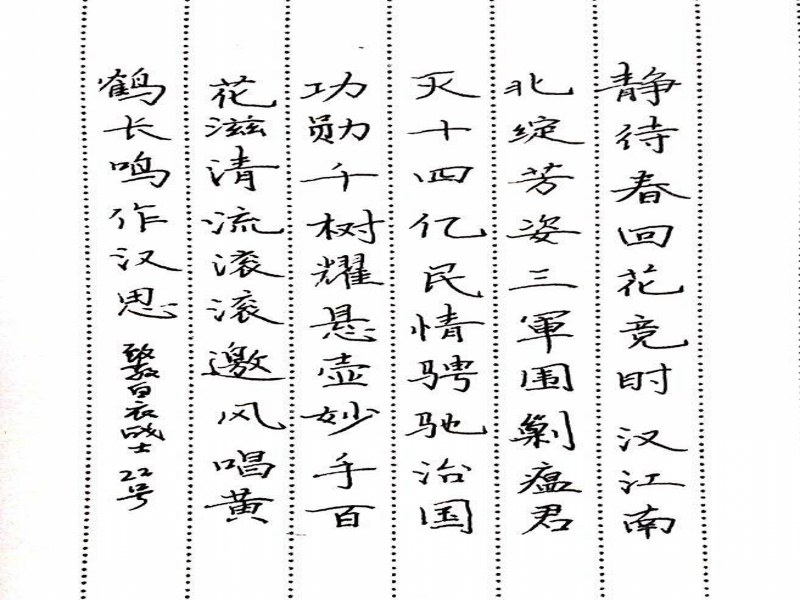 静待春回花竞时汉江南
北绽芳姿三軍围剿瘟君
灭十四亿民情骋驰治国
功勋千树耀悬壶妙手百
花滋清流滚滚邀风唱黄
鹤长鸣作汉思
致敬白衣战士 22号